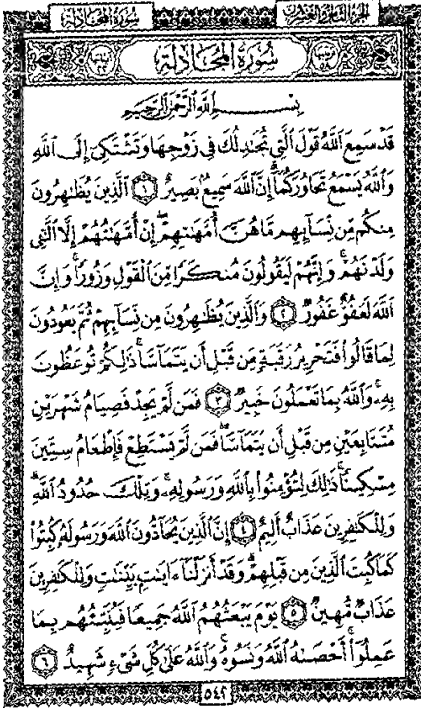 سُورَةُ المُجَادلة
الجزء الثامن والعشرون
سُورَةُ المُجَادلَة
بِسْمِ اللَّهِ الرَّحْمَٰنِ الرَّحِيمِ
قَدْ سَمِعَ ٱللَّهُ قَوْلَ ٱلَّتِى تُجَٰدِلُكَ فِى زَوْجِهَا وَتَشْتَكِىٓ إِلَى ٱللَّهِ
وَٱللَّهُ يَسْمَعُ تَحَاوُرَكُمَآ إِنَّ ٱللَّهَ سَمِيعٌۢ بَصِيرٌ ١ ٱلَّذِينَ يُظَٰهِرُونَ
مِنكُم مِّن نِّسَآئِهِم مَّا هُنَّ أُمَّهَٰتِهِمْ إِنْ أُمَّهَٰتُهُمْ إِلَّا ٱلَّٰٓـِٔى
وَلَدْنَهُمْ وَإِنَّهُمْ لَيَقُولُونَ مُنكَرًا مِّنَ ٱلْقَوْلِ وَزُورًا وَإِنَّ
ٱللَّهَ لَعَفُوٌّ غَفُورٌ ٢ وَٱلَّذِينَ يُظَٰهِرُونَ مِن نِّسَآئِهِمْ ثُمَّ يَعُودُونَ
لِمَا قَالُوا۟ فَتَحْرِيرُ رَقَبَةٍ مِّن قَبْلِ أَن يَتَمَآسَّا ذَٰلِكُمْ تُوعَظُونَ
بِهِۦ وَٱللَّهُ بِمَا تَعْمَلُونَ خَبِيرٌ ٣ فَمَن لَّمْ يَجِدْ فَصِيَامُ شَهْرَيْنِ
مُتَتَابِعَيْنِ مِن قَبْلِ أَن يَتَمَآسَّا فَمَن لَّمْ يَسْتَطِعْ فَإِطْعَامُ سِتِّينَ
مِسْكِينًا ذَٰلِكَ لِتُؤْمِنُوا۟ بِٱللَّهِ وَرَسُولِهِۦ وَتِلْكَ حُدُودُ ٱللَّهِ
وَلِلْكَٰفِرِينَ عَذَابٌ أَلِيمٌ ٤ إِنَّ ٱلَّذِينَ يُحَآدُّونَ ٱللَّهَ وَرَسُولَهُۥ كُبِتُوا۟
كَمَا كُبِتَ ٱلَّذِينَ مِن قَبْلِهِمْ وَقَدْ أَنزَلْنَآ ءَايَٰتٍۭ بَيِّنَٰتٍ وَلِلْكَٰفِرِينَ
عَذَابٌ مُّهِينٌ ٥ يَوْمَ يَبْعَثُهُمُ ٱللَّهُ جَمِيعًا فَيُنَبِّئُهُم بِمَا
عَمِلُوٓا۟ أَحْصَىٰهُ ٱللَّهُ وَنَسُوهُ وَٱللَّهُ عَلَىٰ كُلِّ شَىْءٍ شَهِيدٌ ٦
٥٤٢